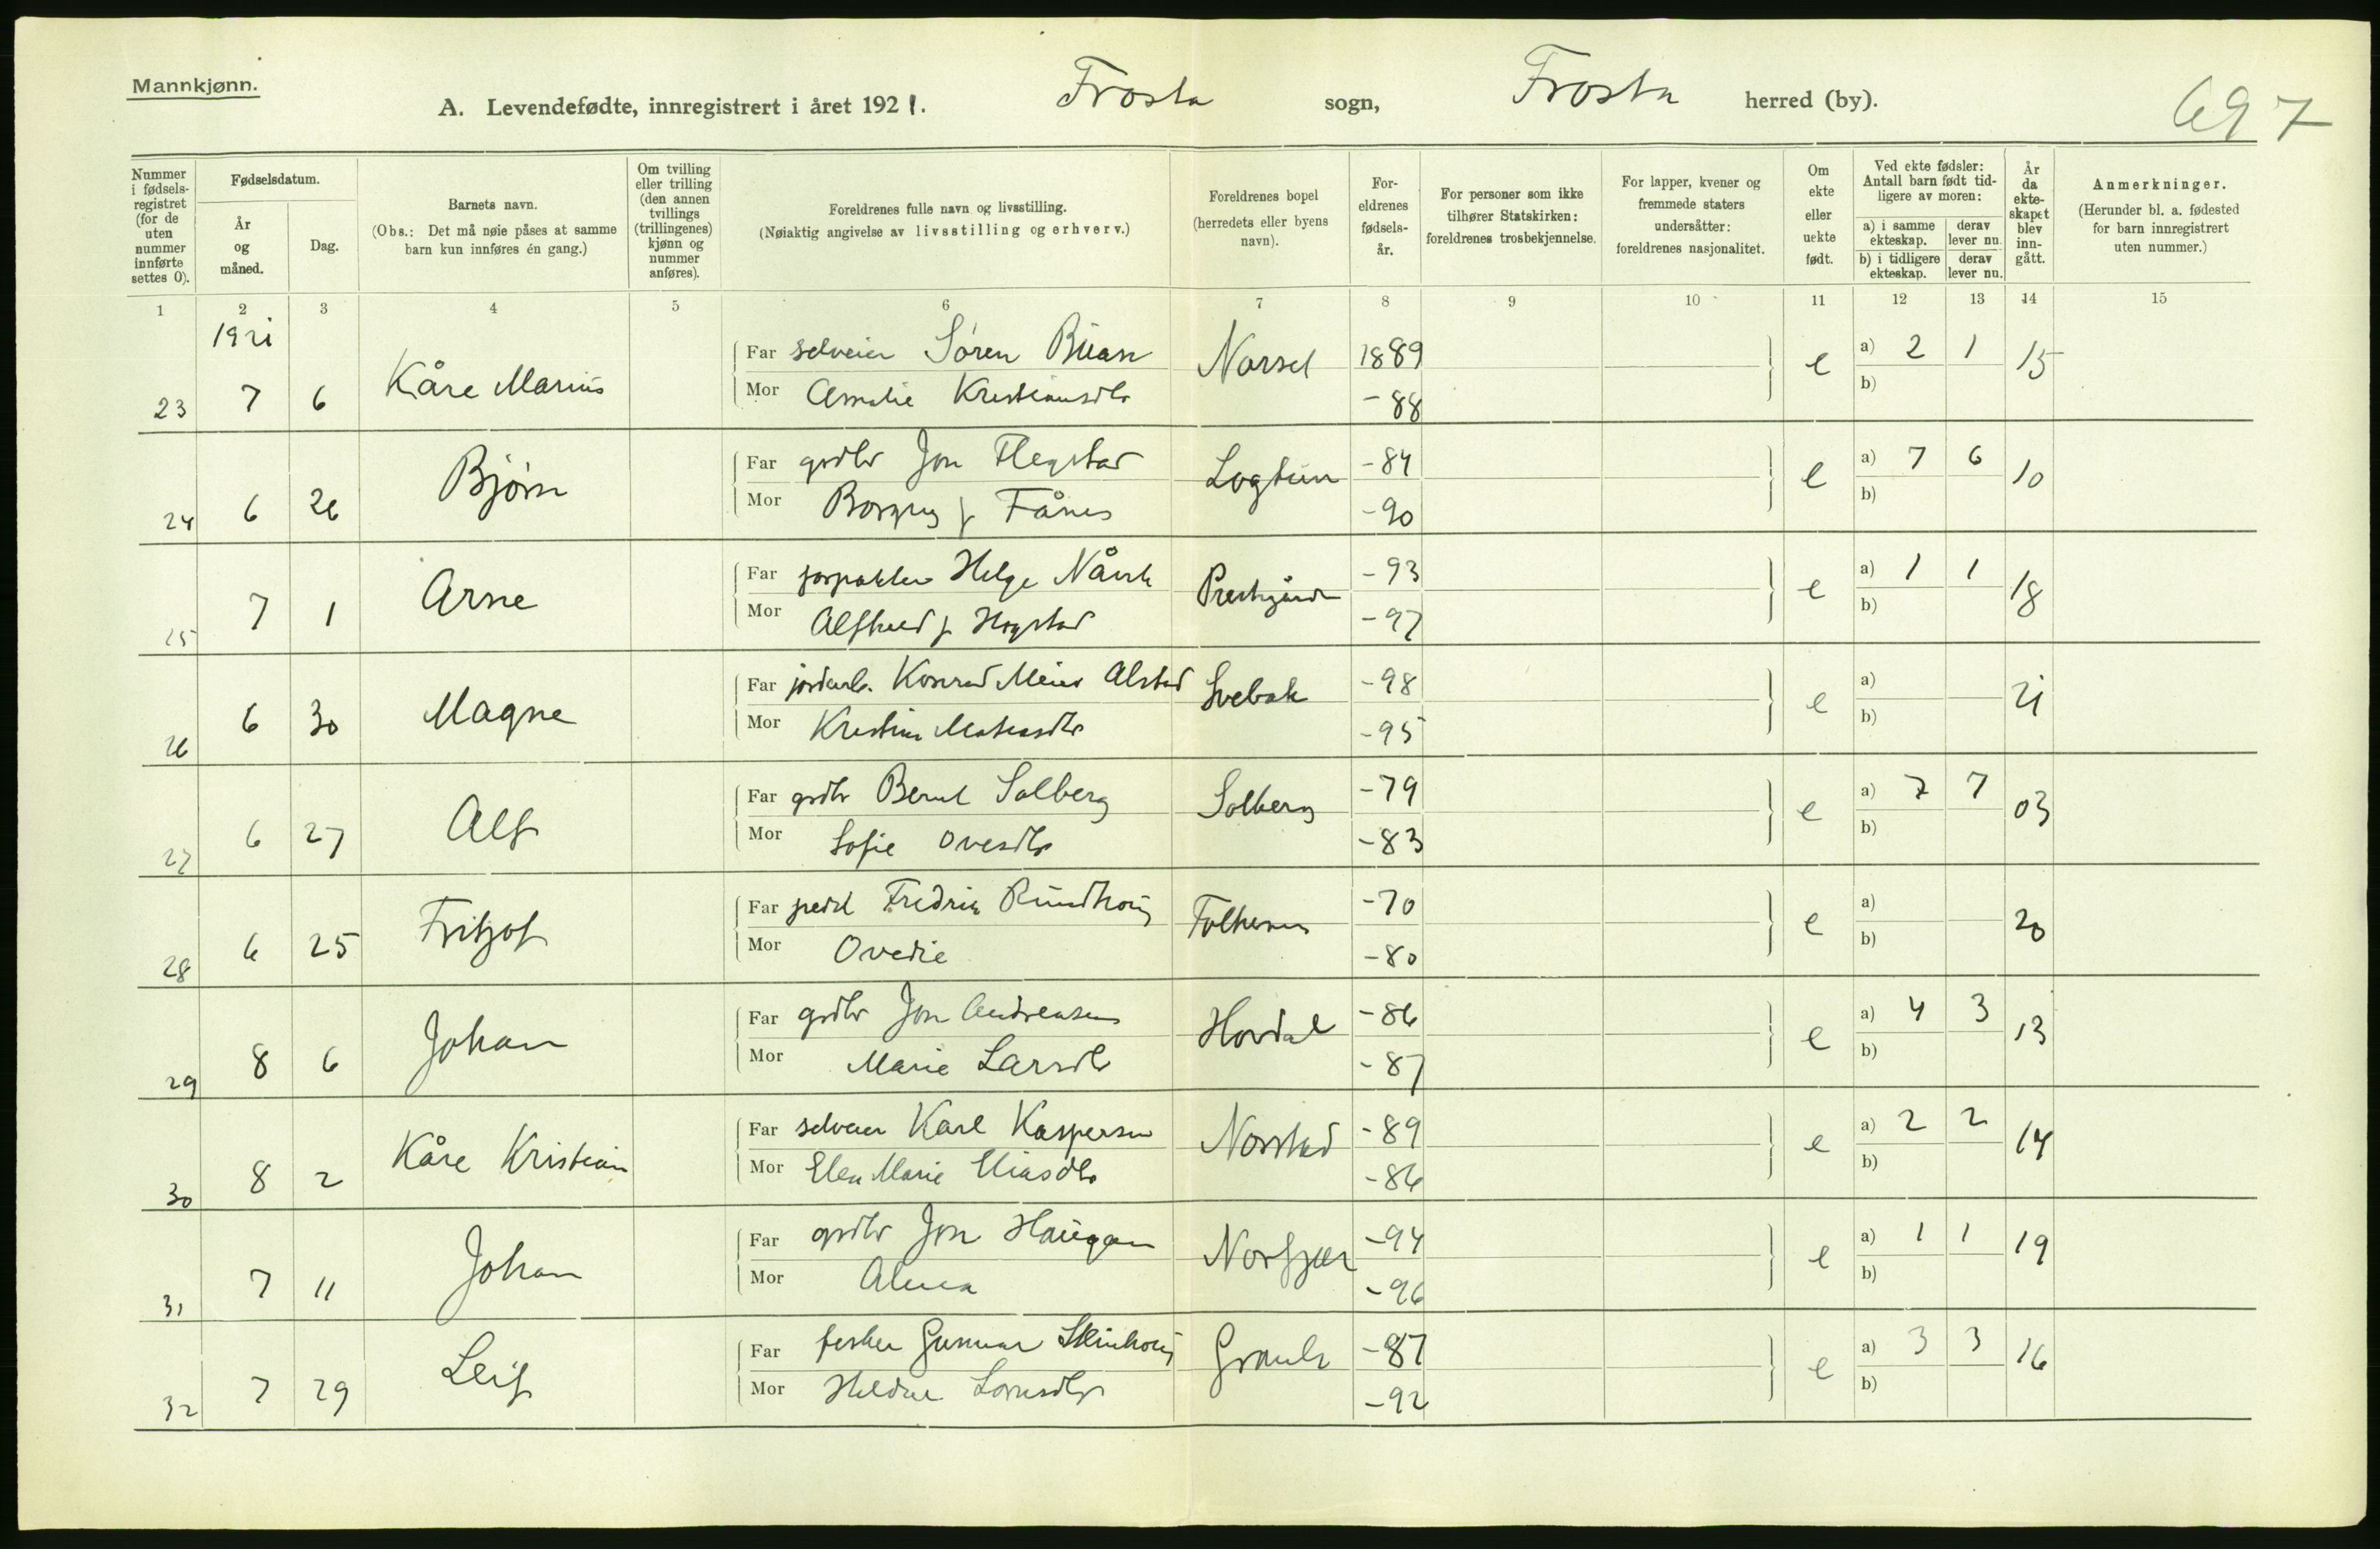 Mannkjønn.
A. Levendefødte, innregistrert i året 1921. Frosta sogn, Frosta herred (by). 697
Nummer i fødsels-registret (for de uten nummer innførte settes 0).
Fødselsdatum.
År og måned.
Dag.
Barnets navn.
(Obs.: Det må nøie påses at samme barn kun innføres én gang.)
Om tvilling eller trilling (den annen tvillings (trillingenes) kjønn og nummer anføres).
Foreldrenes fulle navn og livsstilling.
(Nøiaktig angivelse av livsstilling og erhverv.)
Foreldrenes bopel (herredets eller byens navn).
For-eldrenes fødsels-år.
For personer som ikke tilhører Statskirken: foreldrenes trosbekjennelse.
For lapper, kvener og fremmede staters undersåtter: foreldrenes nasjonalitet.
Om ekte eller uekte født.
Ved ekte fødsler: Antall barn født tid-ligere av moren:
a) i samme ekteskap. derav lever nu.
b) i tidligere ekteskap. derav lever nu.
År da ekte-skapet blev inn-gått.
Anmerkninger.
(Herunder bl. a. fødested for barn innregistrert uten nummer.)
1 2 3 4 5 6 7 8 9 10 11 12 13 14 15
1921
23 7 6 Kåre Marius Far selveier Søren Buan 1889 e a) 2 1 15
Mor Amalie Kristiansdtr -88 b)
24 6 26 Bjørn Far grdbr Jon Flegstad Logtun -84 e a) 7 6 10
Mor f Fånes -90 b)
25 7 1 Arne Far Helge Prestgård -93 e a) 1 1 18
Mor Alfhild f -97 b)
26 6 30 Magne Far jordarb. Konrad Alstad -98 e a) 21
Mor -95 b)
27 6 27 Alf Far grdbr Bernt Solberg Solberg -79 e a) 7 7 03
Mor Sofie Ovesdtr -83 b)
28 6 25 Fritjof Far Fredrik Rundhaug -70 e a) 20
Mor Ovedie -80 b)
29 8 6 Johan Far grdbr Jon Andreasen Hovdal -86 e a) 4 3 13
Mor Marie Larsdtr -87 b)
30 8 2 Kåre Kristian Far selveier Karl Kaspersen -89 e a) 2 2 14
Mor Elen Marie Eliasdtr -86 b)
31 7 11 Johan Far grdbr Jon Haugan -94 e a) 1 1 19
Mor -96 b)
32 7 29 Leif Far fisker Gunnar -87 e a) 3 3 16
Mor -92 b)